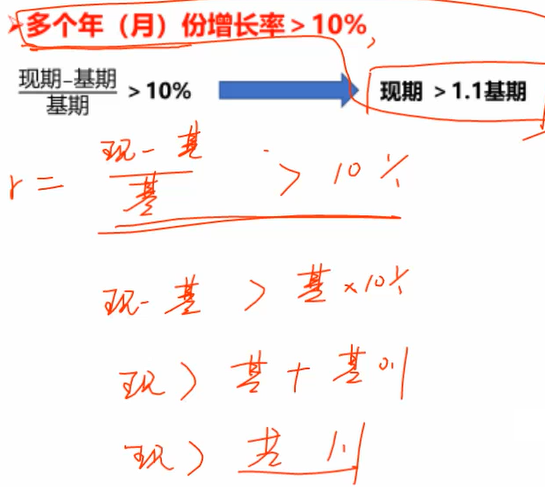 多个年（月）份增长率＞10%,
现期-基期
基期
＞10%
现期 ＞1.1基期
r = 现-基
基
> 10%
现-基 > 基×10%
现 > 基 + 基 0.1
现 > 基 1.1